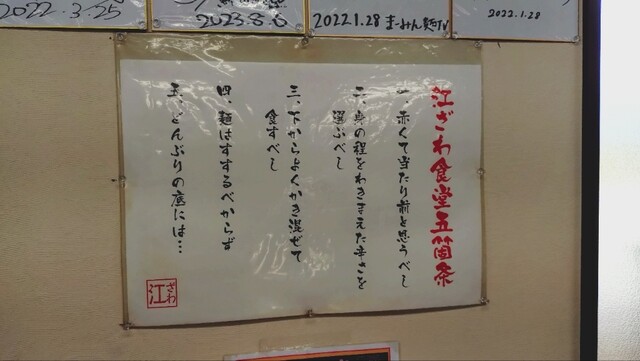 2022.3.25
2023.8.6
2022.1.28 まーみん麺TV
2022.1.28
江ざわ食堂五箇条
一、赤くて当たり前と思うべし
二、身の程をわきまえた辛さを
選ぶべし
三、下からよくかき混ぜて
食すべし
四、麺はすするべからず
五、どんぶりの底には…
江ざわ